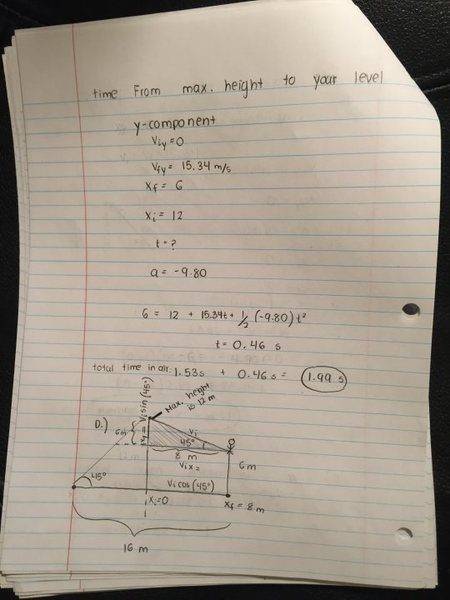 time From max. height to your level
y-component
Viy=0
Vfy= 15.34 m/s
Xf = 6
Xi = 12
t = ?
a = -9.80
6 = 12 + 15.34t + 1/2 (-9.80) t²
t = 0.46 s
total time in air: 1.53s + 0.46 s = 1.99 s
D.)
Visin(45°)
Max. height
is 12 m
6m
Vi
45°
8 m
Vix=
6m
45°
Vicos(45°)
Xi=0
Xf = 8 m
16 m